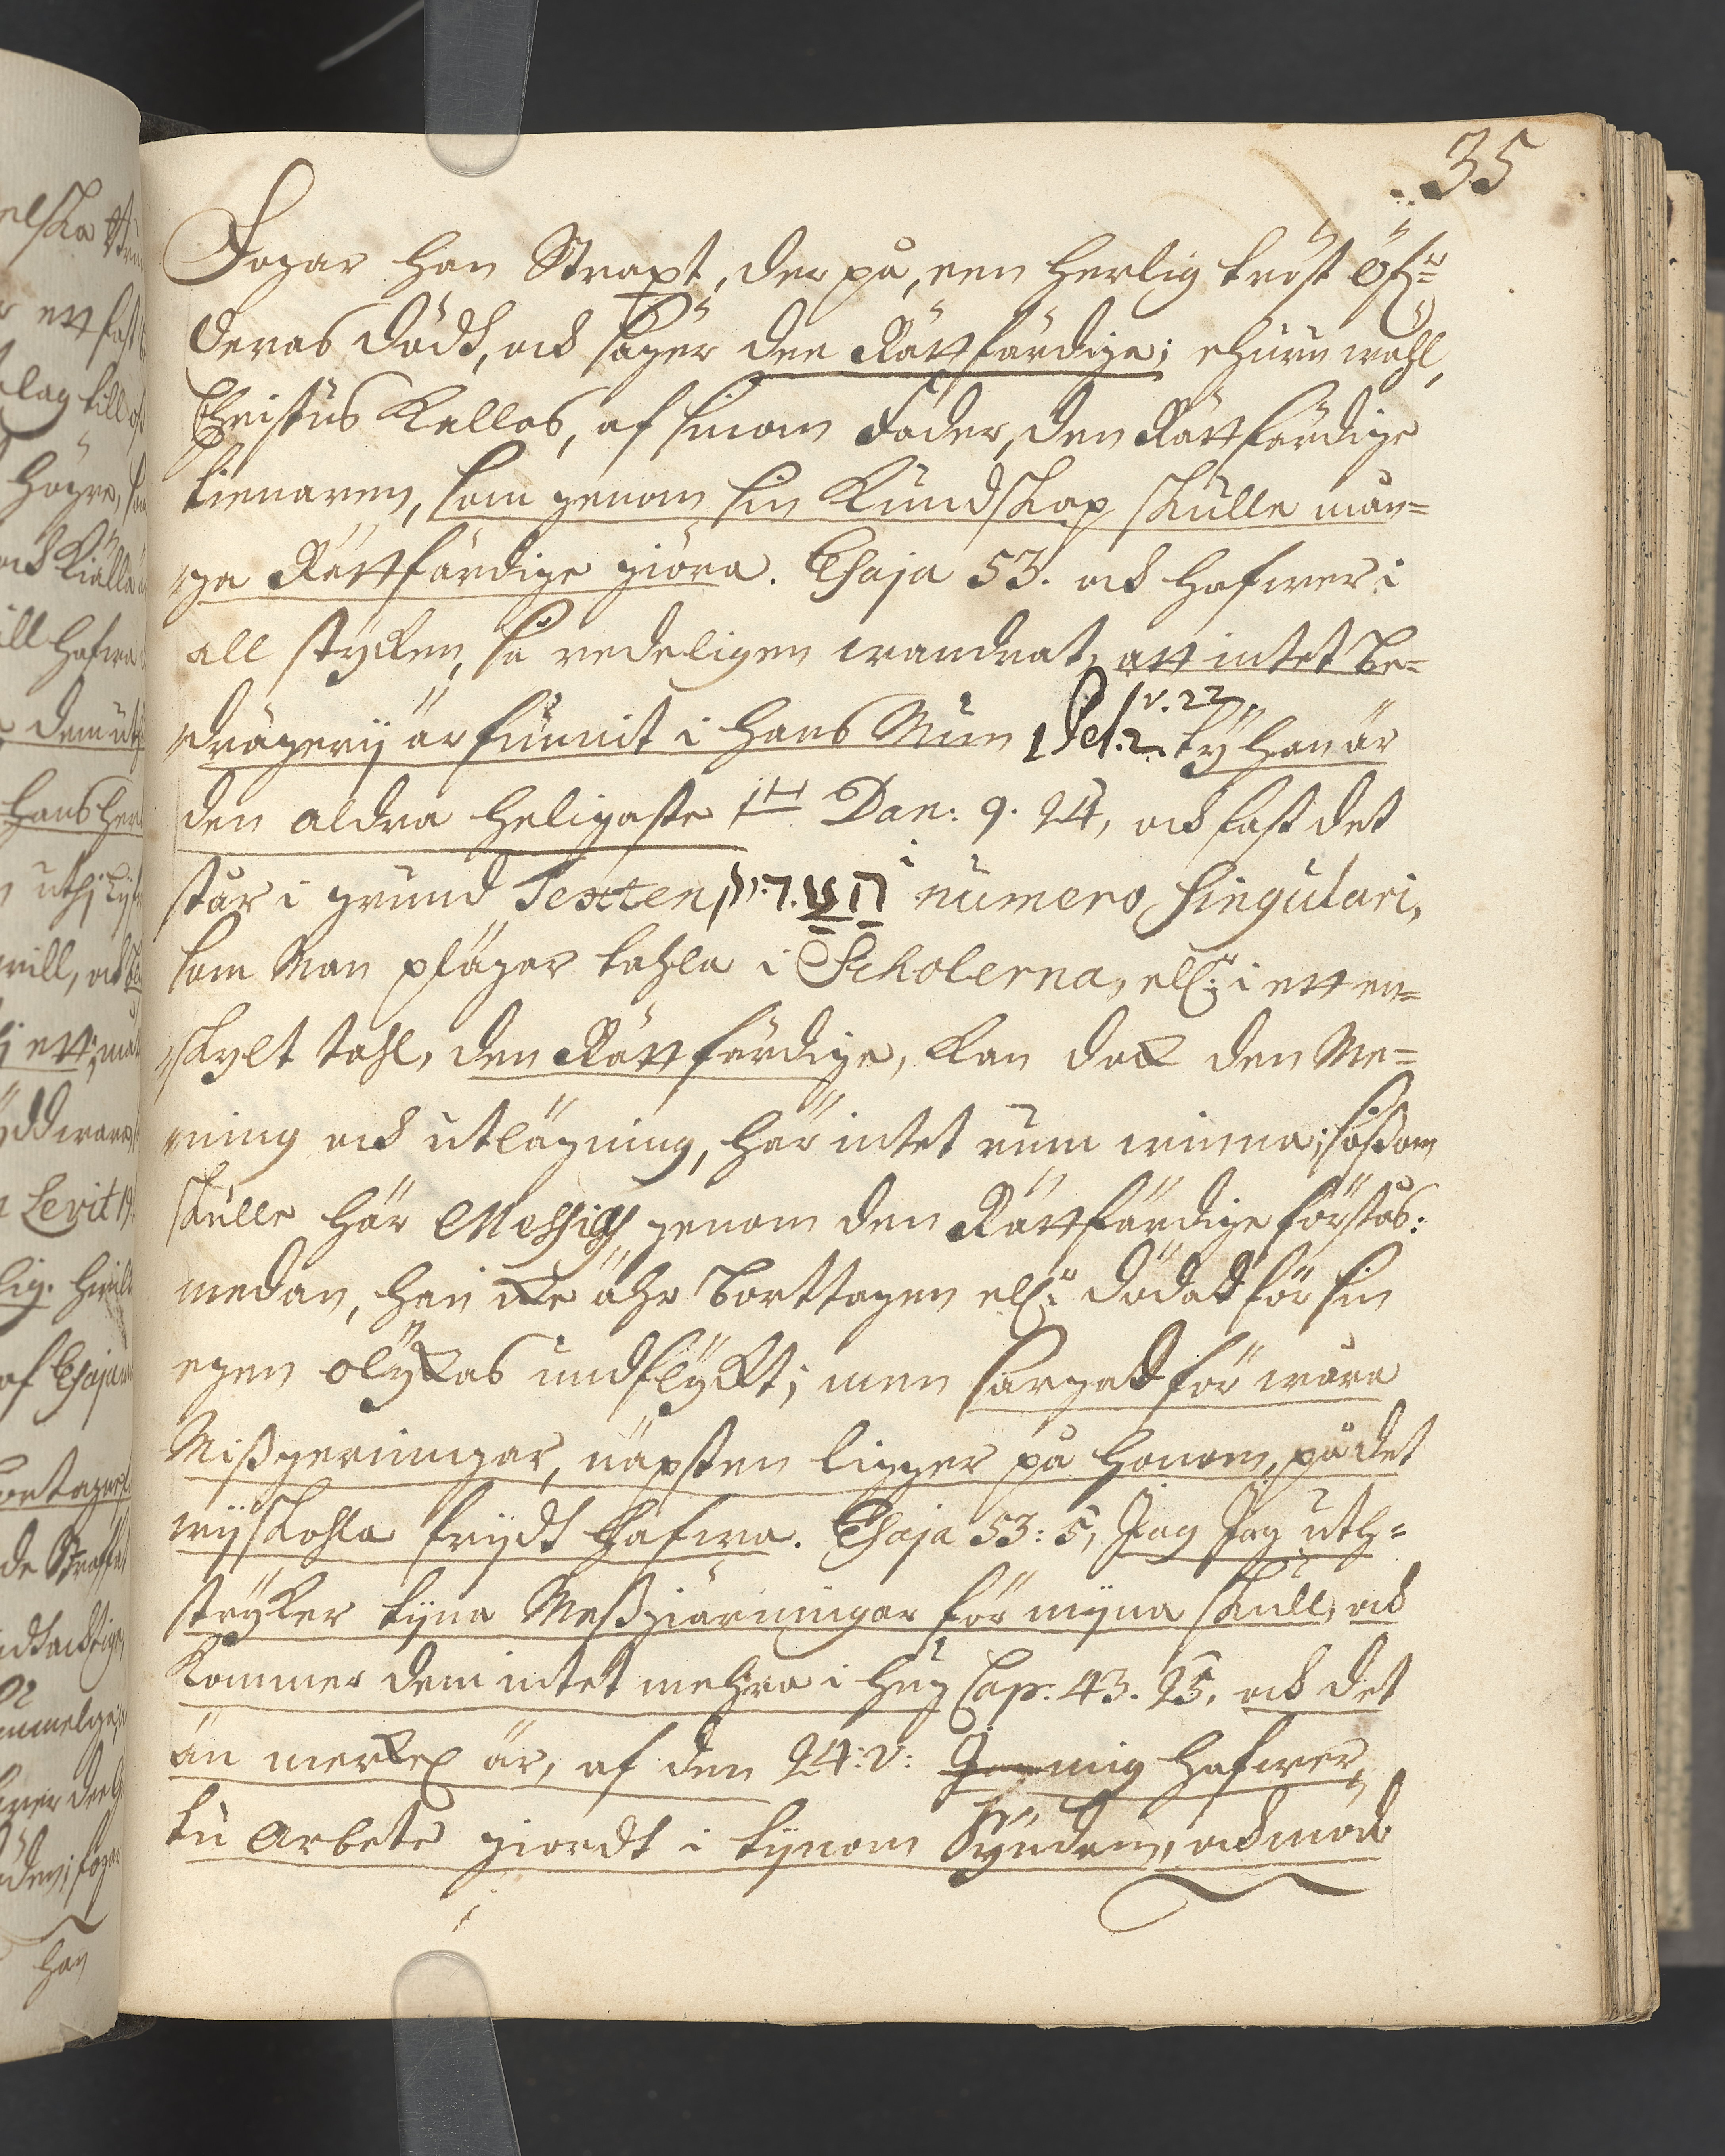 35
Fogar han Straxt, der på, een herlig tröst öf:r
deras Dödh, och säger den Rättfärdige; ehuru wähl,
Christus kallas, af sinom Fader, den Rättfärdige
tienaren, som genom sin Kundskap skulle mån=
ga Rättfärdige giöra. Esaja 53. och hafwer i
all stycken, så redeligen wandrat, att intet Be=
drägerij är funnit i hans Mun 1 Pet. 2. v. 22. ty han är
den aldra heligaste Dan: 9. 24, och fast det
står i grund Texten הצדיק i numero singulari,
som Man pläger tahla i Scholerna, ell:r i ett en=
skylt tahl, den Rättfärdige, kan doch den Me=
ning och utlägning, här intet rum winna; såsom
skulle här Messias genom den Rättfärdige förstås:
medan, han icke ähr borttagen ell:r dödad för sin
egen olyckas undflyckt; men sargad för wåra
Mißgerningar, näpsten ligger på honom, på det
wij skohla frijdt hafwa. Esaja 53: 5, Jag Jag uth=
stryker tijna Meßgiärningar för mijna skull, och
kommer dem intet mehra i hug Cap. 43. 25. och det
än mer är, af den 24: v: mig hafwer
tu Arbete giordt i tijnom Syndom, och möde